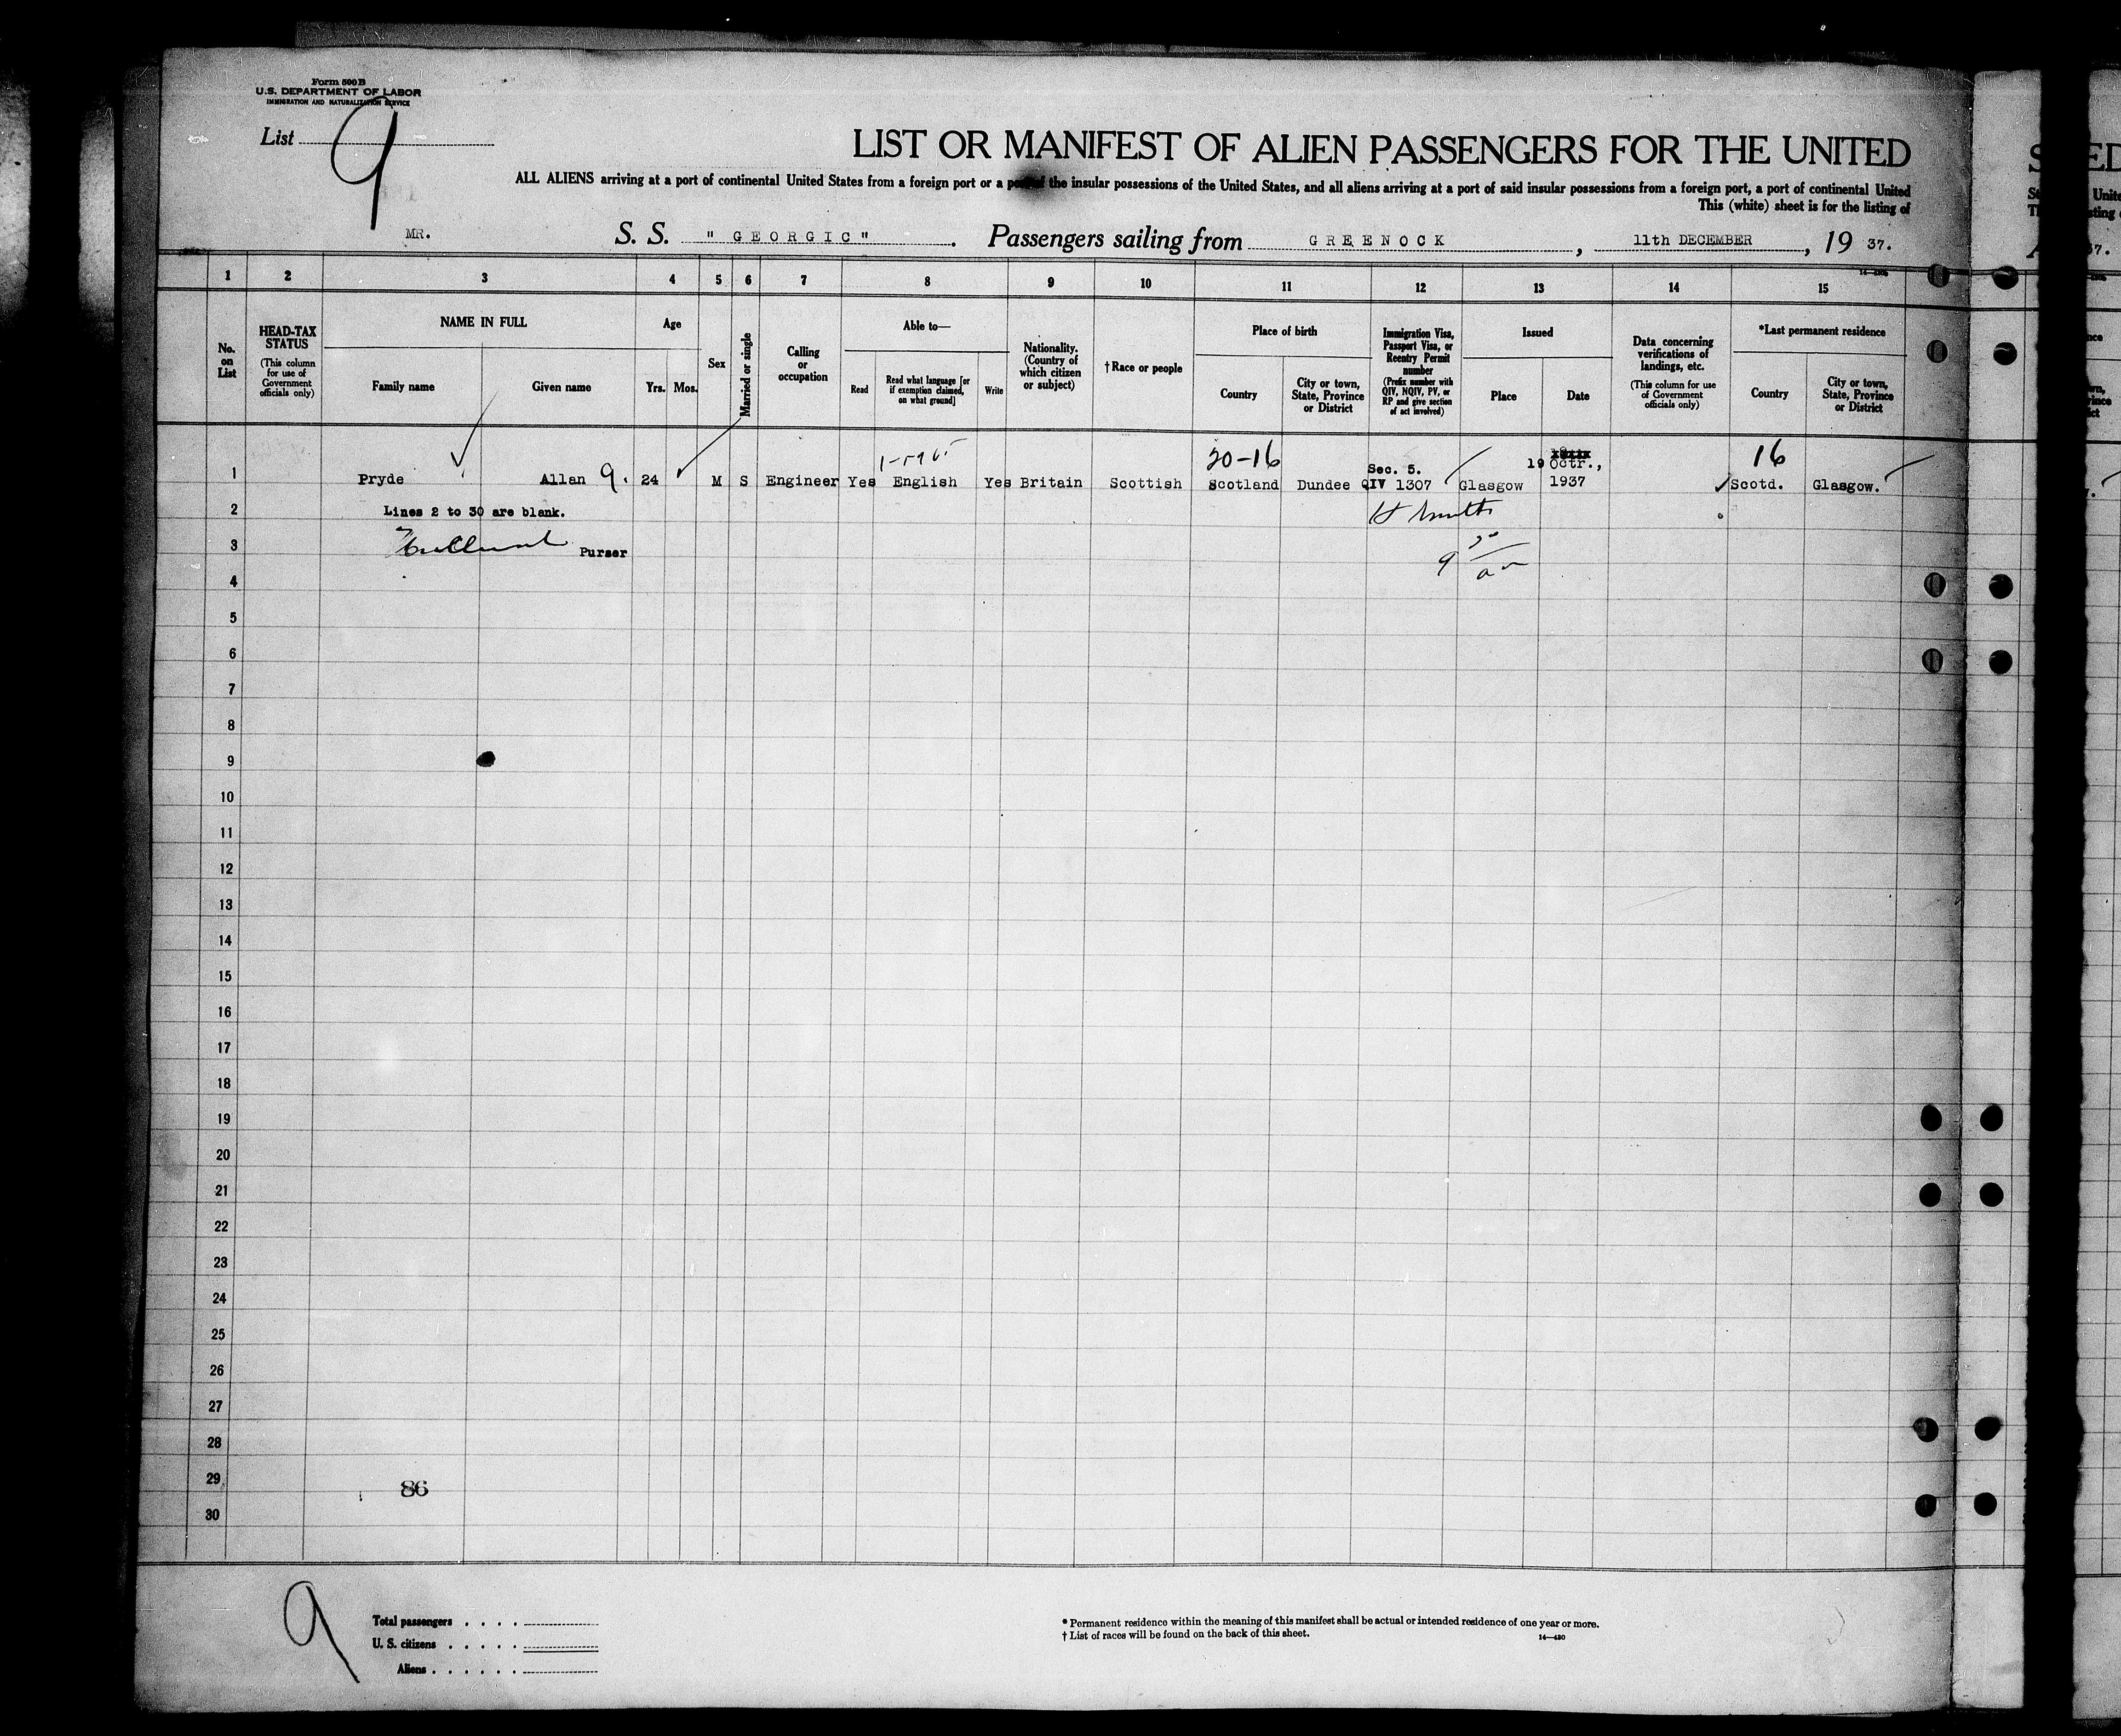 Form 500 B
U.S. DEPARTMENT OF LABOR
IMMIGRATION AND NATURALIZATION SERVICE
List 9
LIST OR MANIFEST OF ALIEN PASSENGERS FOR THE UNITED
ALL ALIENS arriving at a port of continental United States from a foreign port or a port of the insular possessions of the United States, and all aliens arriving at a port of said insular possessions from a foreign port, a port of continental United
This (white) sheet is for the listing of
MR. S. S. "GEORGIC". Passengers sailing from GREENOCK, 11th DECEMBER, 19 37.
1 2 3 4 5 6 7 8 9 10 11 12 13 14 15
No. on List
HEAD-TAX STATUS
(This column for use of Government officials only)
NAME IN FULL
Family name Given name
Age
Yrs. Mos.
Sex
Married or single
Calling or occupation
Able to—
Read
Read what language [or if exemption claimed, on what ground]
Write
Nationality. (Country of which citizen or subject)
†Race or people
Place of birth
Country
City or town, State, Province or District
Immigration Visa, Passport Visa, or Reentry Permit number
(Prefix number with QIV, NQIV, PV, or RP and give section of act involved)
Issued
Place Date
Data concerning verifications of landings, etc.
(This column for use of Government officials only)
*Last permanent residence
Country
City or town, State, Province or District
20-16 16
Sec. 5. 19 Octr.,
1 Pryde Allan G. 24 M S Engineer Yes English Yes Britain Scottish Scotland Dundee QIV 1307 Glasgow 1937 Scotd. Glasgow.
2 Lines 2 to 30 are blank.
3 Purser
4
5
6
7
8
9
10
11
12
13
14
15
16
17
18
19
20
21
22
23
24
25
26
27
28
29 86
30
9
Total passengers . . . .
U. S. citizens . . . . .
Aliens . . . . . .
* Permanent residence within the meaning of this manifest shall be actual or intended residence of one year or more.
† List of races will be found on the back of this sheet.
14—430